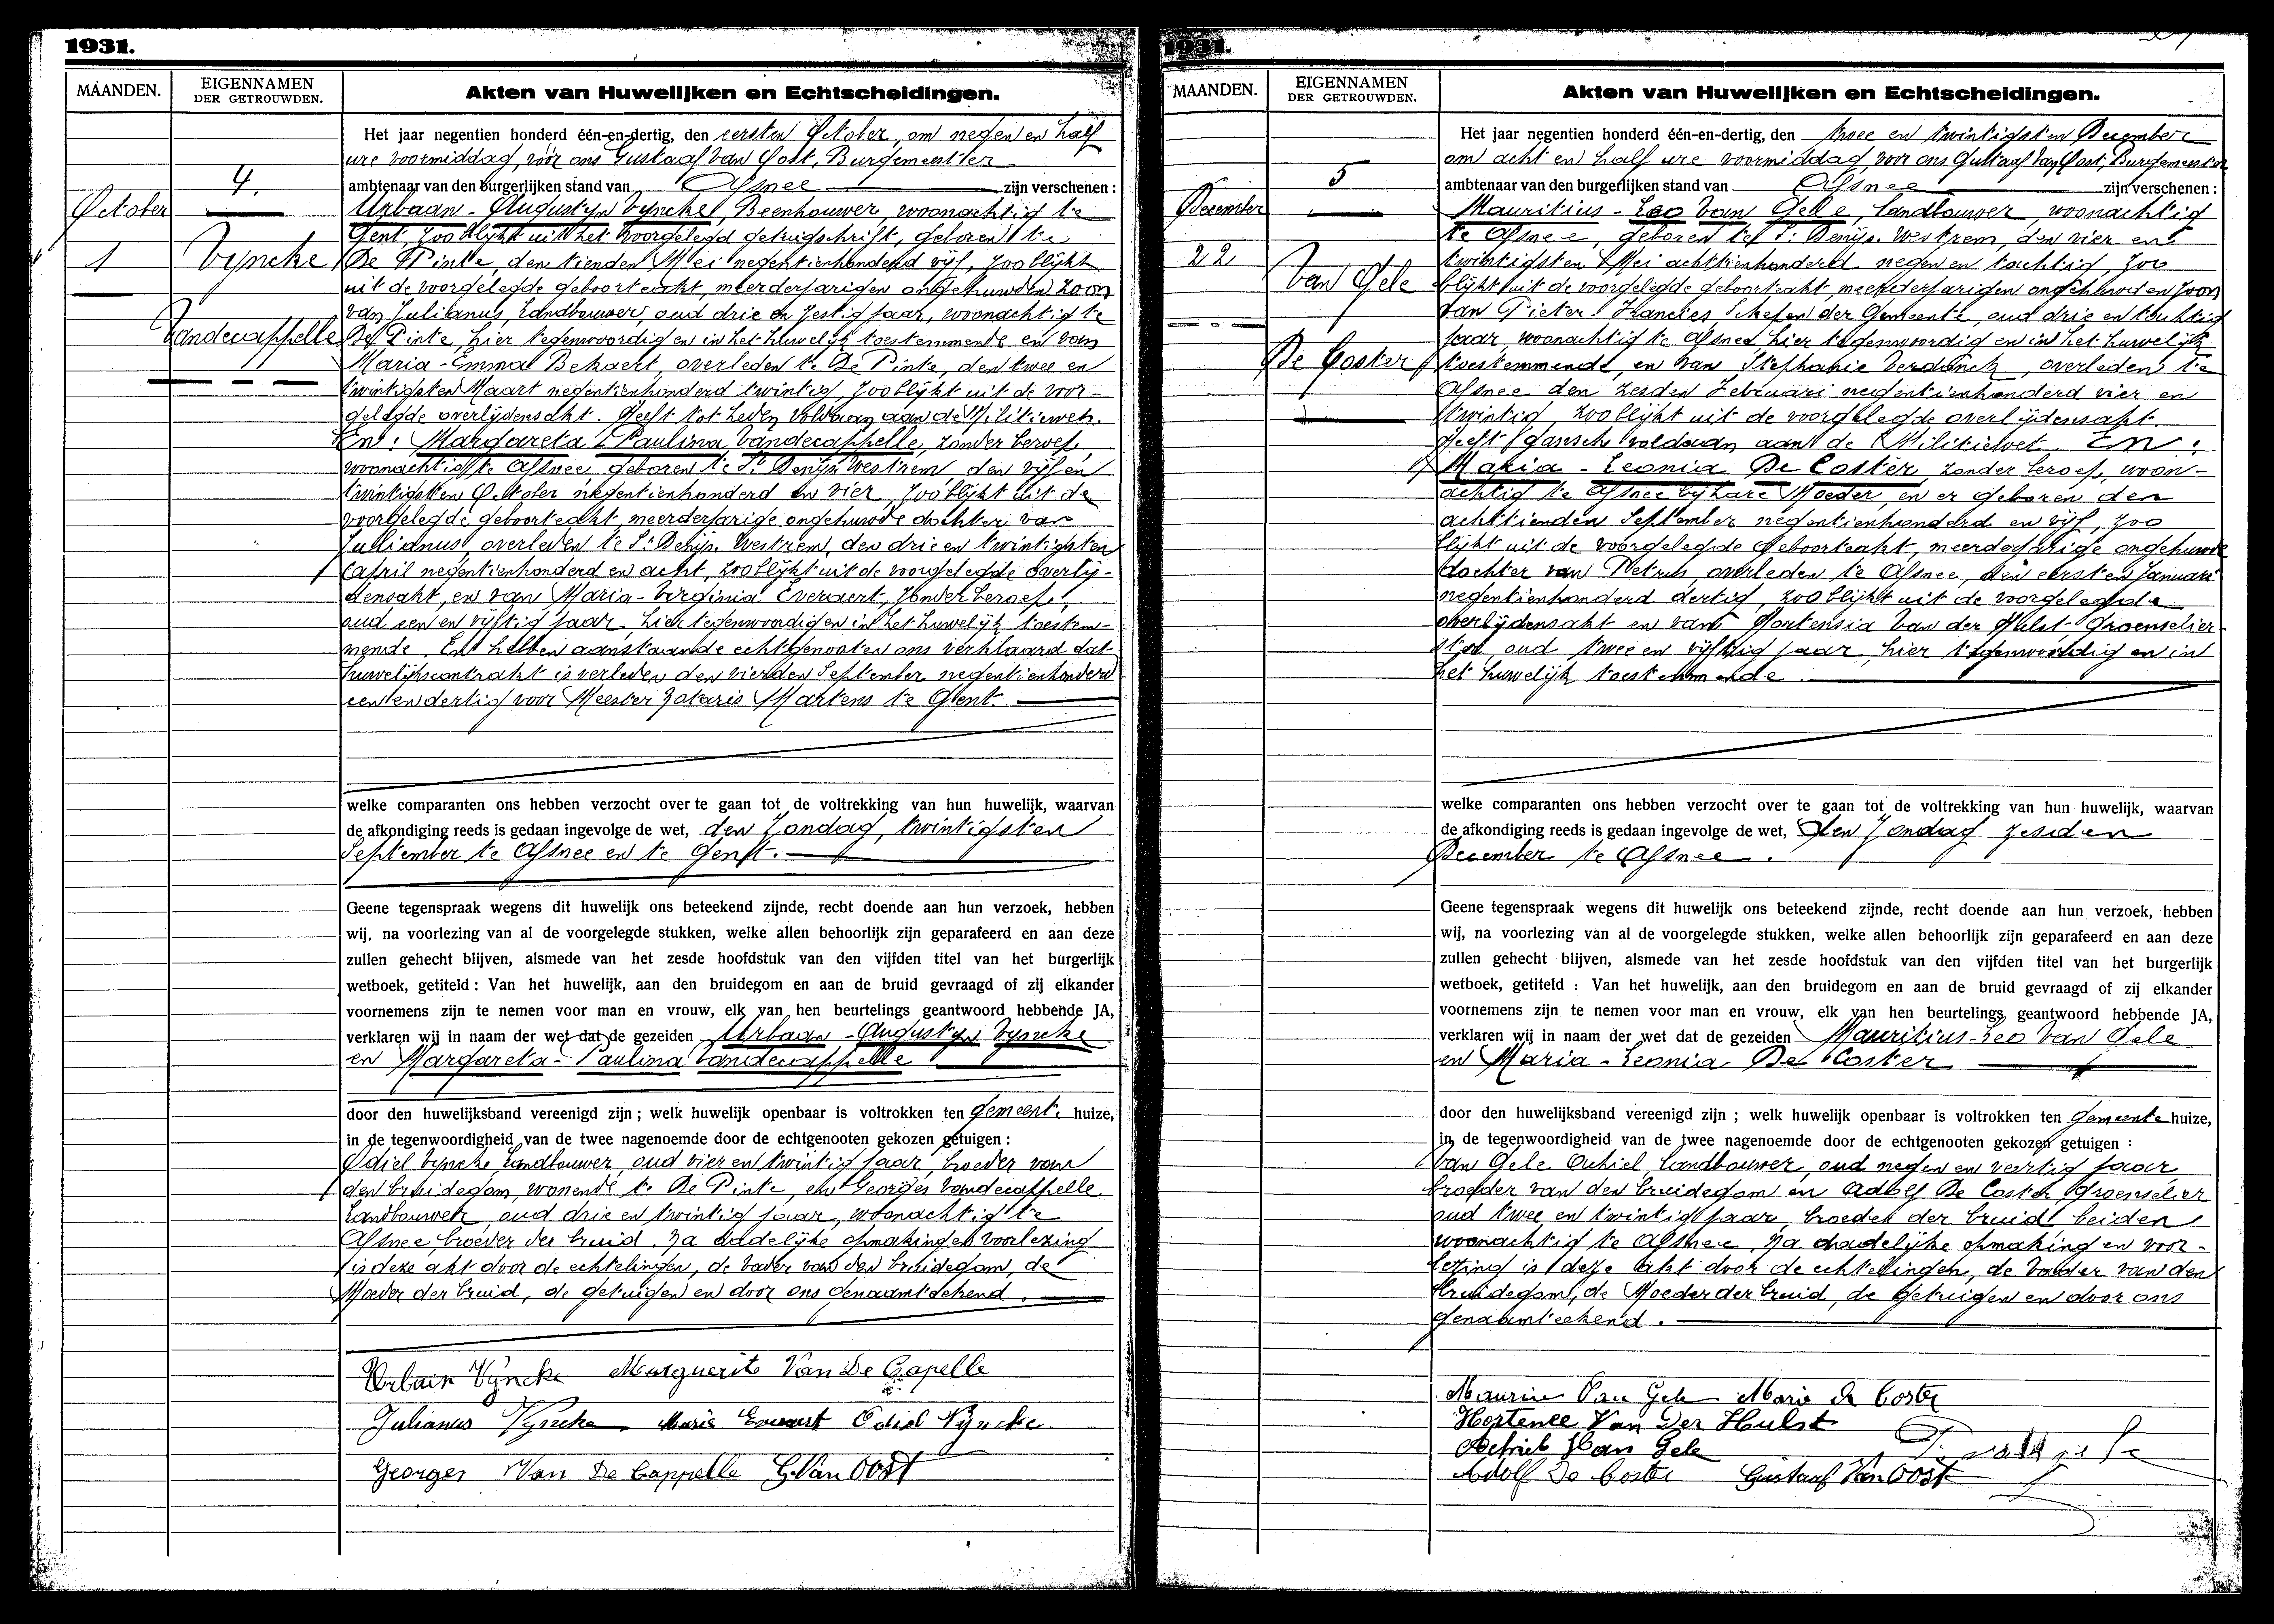 1931.
MAANDEN.
EIGENNAMEN
DER GETROUWDEN.
Akten van Huwelijken en Echtscheidingen.
4.
October
1
Vyncke
Vandecappelle
Het jaar negentien honderd één-en-dertig, den eersten October, om negen en half
ure voormiddag, voor ons Gustaaf Van Oost, Burgemeester
ambtenaar van den burgerlijken stand van Afsnee zijn verschenen :
Urbaan - Augustyn Vyncke, Beenhouwer, woonachtig te
Gent, zoo blijkt uit het voorgelegd getuigschrift, geboren te
De Pinte, den tienden Mei negentienhonderd vijf, zoo blijkt
uit de voorgelegde geboorteakt, meerderjarigen ongehuwden zoon
van Julianus, Landbouwer, oud drie en zestig jaar, woonachtig te
De Pinte, hier tegenwoordig en in het huwelijk toestemmende en van
Maria-Emma Bekaert, overleden te De Pinte, den twee en
twintigsten Maart negentienhonderd twintig, zoo blijkt uit de voor-
gelegde overlijdensakt. Heeft tot heden voldaan aan de Militiewet.
En : Margareta - Paulina Vandecappelle, zonder beroep,
woonachtig te Afsnee, geboren te St Denijs Westrem, den vijf en
twintigsten October negentienhonderd en vier, zoo blijkt uit de
voorgelegde geboorteakt, meerderjarige ongehuwde dochter van
Julianus, overleden te St Denijs Westrem, den drie en twintigsten
April negentienhonderd en acht, zoo blijkt uit de voorgelegde overlij-
densakt, en van Maria-Virginia Everaert, zonder beroep,
oud een en vijftig jaar, hier tegenwoordig en in het huwelijk toestem-
mende. En hebben aanstaande echtgenooten ons verklaard dat
huwelijkscontrakt is verleden den vierden September negentienhonderd
een en dertig voor Meester Notaris Martens te Gent.
welke comparanten ons hebben verzocht over te gaan tot de voltrekking van hun huwelijk, waarvan
de afkondiging reeds is gedaan ingevolge de wet, den Zondag, twintigsten
September te Afsnee en te Gent.
Geene tegenspraak wegens dit huwelijk ons beteekend zijnde, recht doende aan hun verzoek, hebben
wij, na voorlezing van al de voorgelegde stukken, welke allen behoorlijk zijn geparafeerd en aan deze
zullen gehecht blijven, alsmede van het zesde hoofdstuk van den vijfden titel van het burgerlijk
wetboek, getiteld : Van het huwelijk, aan den bruidegom en aan de bruid gevraagd of zij elkander
voornemens zijn te nemen voor man en vrouw, elk van hen beurtelings geantwoord hebbende JA,
verklaren wij in naam der wet dat de gezeiden Urbaan - Augustyn Vyncke
en Margareta - Paulina Vandecappelle
door den huwelijksband vereenigd zijn ; welk huwelijk openbaar is voltrokken ten gemeente huize,
in de tegenwoordigheid van de twee nagenoemde door de echtgenooten gekozen getuigen :
Odiel Vyncke Landbouwer, oud vier en twintig jaar, broeder van
den bruidegom, wonende te De Pinte, en Georges Vandecappelle
Landbouwer, oud drie en twintig jaar, woonachtig te
Afsnee, broeder der bruid. Na dadelijke opmaking en voorlezing
is deze akt door de echtelingen, de vader van den bruidegom, de
Moeder der bruid, de getuigen en door ons genaamteekend.
Urbain Vyncke Marguerite Van De Capelle
Julianus Vyncke Maria Everaert Odiel Vyncke
Georges Van De Cappelle G. Van Oost
1931.
MAANDEN.
EIGENNAMEN
DER GETROUWDEN.
Akten van Huwelijken en Echtscheidingen.
5
December
22
Van Gele
De Coster
Het jaar negentien honderd één-en-dertig, den twee en twintigsten December
om acht en half ure voormiddag voor ons Gustaaf Van Oost, Burgemeester
ambtenaar van den burgerlijken stand van Afsnee zijn verschenen :
Mauritius - Leo Van Gele, Landbouwer, woonachtig
te Afsnee, geboren te St Denijs Westrem, den vier en
twintigsten Mei achttienhonderd negen en tachtig, zoo
blijkt uit de voorgelegde geboorteakt, meerderjarigen ongehuwden zoon
van Pieter-Francies, Schepen der Gemeente, oud drie en tachtig
jaar, woonachtig te Afsnee hier tegenwoordig en in het huwelijk
toestemmende, en van Stephanie Verdonck, overleden te
Afsnee den zesden Februari negentienhonderd vier en
twintig, zoo blijkt uit de voorgelegde overlijdensakt.
Heeft gansch voldaan aan de Militiewet. En :
Maria - Leonia De Coster zonder beroep, woon-
achtig te Afsnee bij hare Moeder, en er geboren den
achttienden September negentienhonderd en vijf, zoo
blijkt uit de voorgelegde geboorteakt, meerderjarige ongehuwde
dochter van Petrus, overleden te Afsnee, den eersten Januari
negentienhonderd dertig, zoo blijkt uit de voorgelegde
overlijdensakt en van Hortensia Van der Hulst Groenselier-
ster, oud twee en vijftig jaar, hier tegenwoordig en in
het huwelijk toestemmende.
welke comparanten ons hebben verzocht over te gaan tot de voltrekking van hun huwelijk, waarvan
de afkondiging reeds is gedaan ingevolge de wet, den Zondag zesden
December te Afsnee.
Geene tegenspraak wegens dit huwelijk ons beteekend zijnde, recht doende aan hun verzoek, hebben
wij, na voorlezing van al de voorgelegde stukken, welke allen behoorlijk zijn geparafeerd en aan deze
zullen gehecht blijven, alsmede van het zesde hoofdstuk van den vijfden titel van het burgerlijk
wetboek, getiteld : Van het huwelijk, aan den bruidegom en aan de bruid gevraagd of zij elkander
voornemens zijn te nemen voor man en vrouw, elk van hen beurtelings geantwoord hebbende JA,
verklaren wij in naam der wet dat de gezeiden Mauritius-Leo Van Gele
en Maria - Leonia De Coster
door den huwelijksband vereenigd zijn ; welk huwelijk openbaar is voltrokken ten gemeente huize,
in de tegenwoordigheid van de twee nagenoemde door de echtgenooten gekozen getuigen :
Van Gele Achiel, Landbouwer, oud negen en veertig jaar
broeder van den bruidegom en Adolf De Coster, Groenselier
oud twee en twintig jaar, broeder der bruid, beiden
woonachtig te Afsnee. Na dadelijke opmaking en voor-
lezing is deze akt door de echtelingen, de Vader van den
bruidegom, de Moeder der bruid, de getuigen en door ons
genaamteekend.
Maurice Van Gele Marie De Coster
Hortence Van Der Hulst
Achiel Van Gele
Adolf De Coster Gustaaf Van Oost